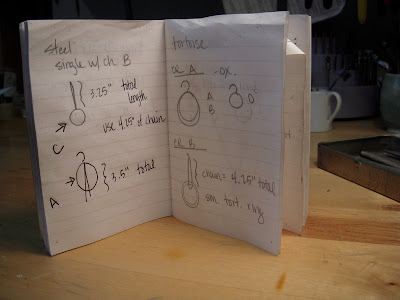 steel
single w/ ch. B
3.25" total
length
use 4.25" of chain
C
3.5" total
A
tortoise
CE A -OX-
A
B
D
CE B
chain = 4.25" total
sm. tort. ring
tort.